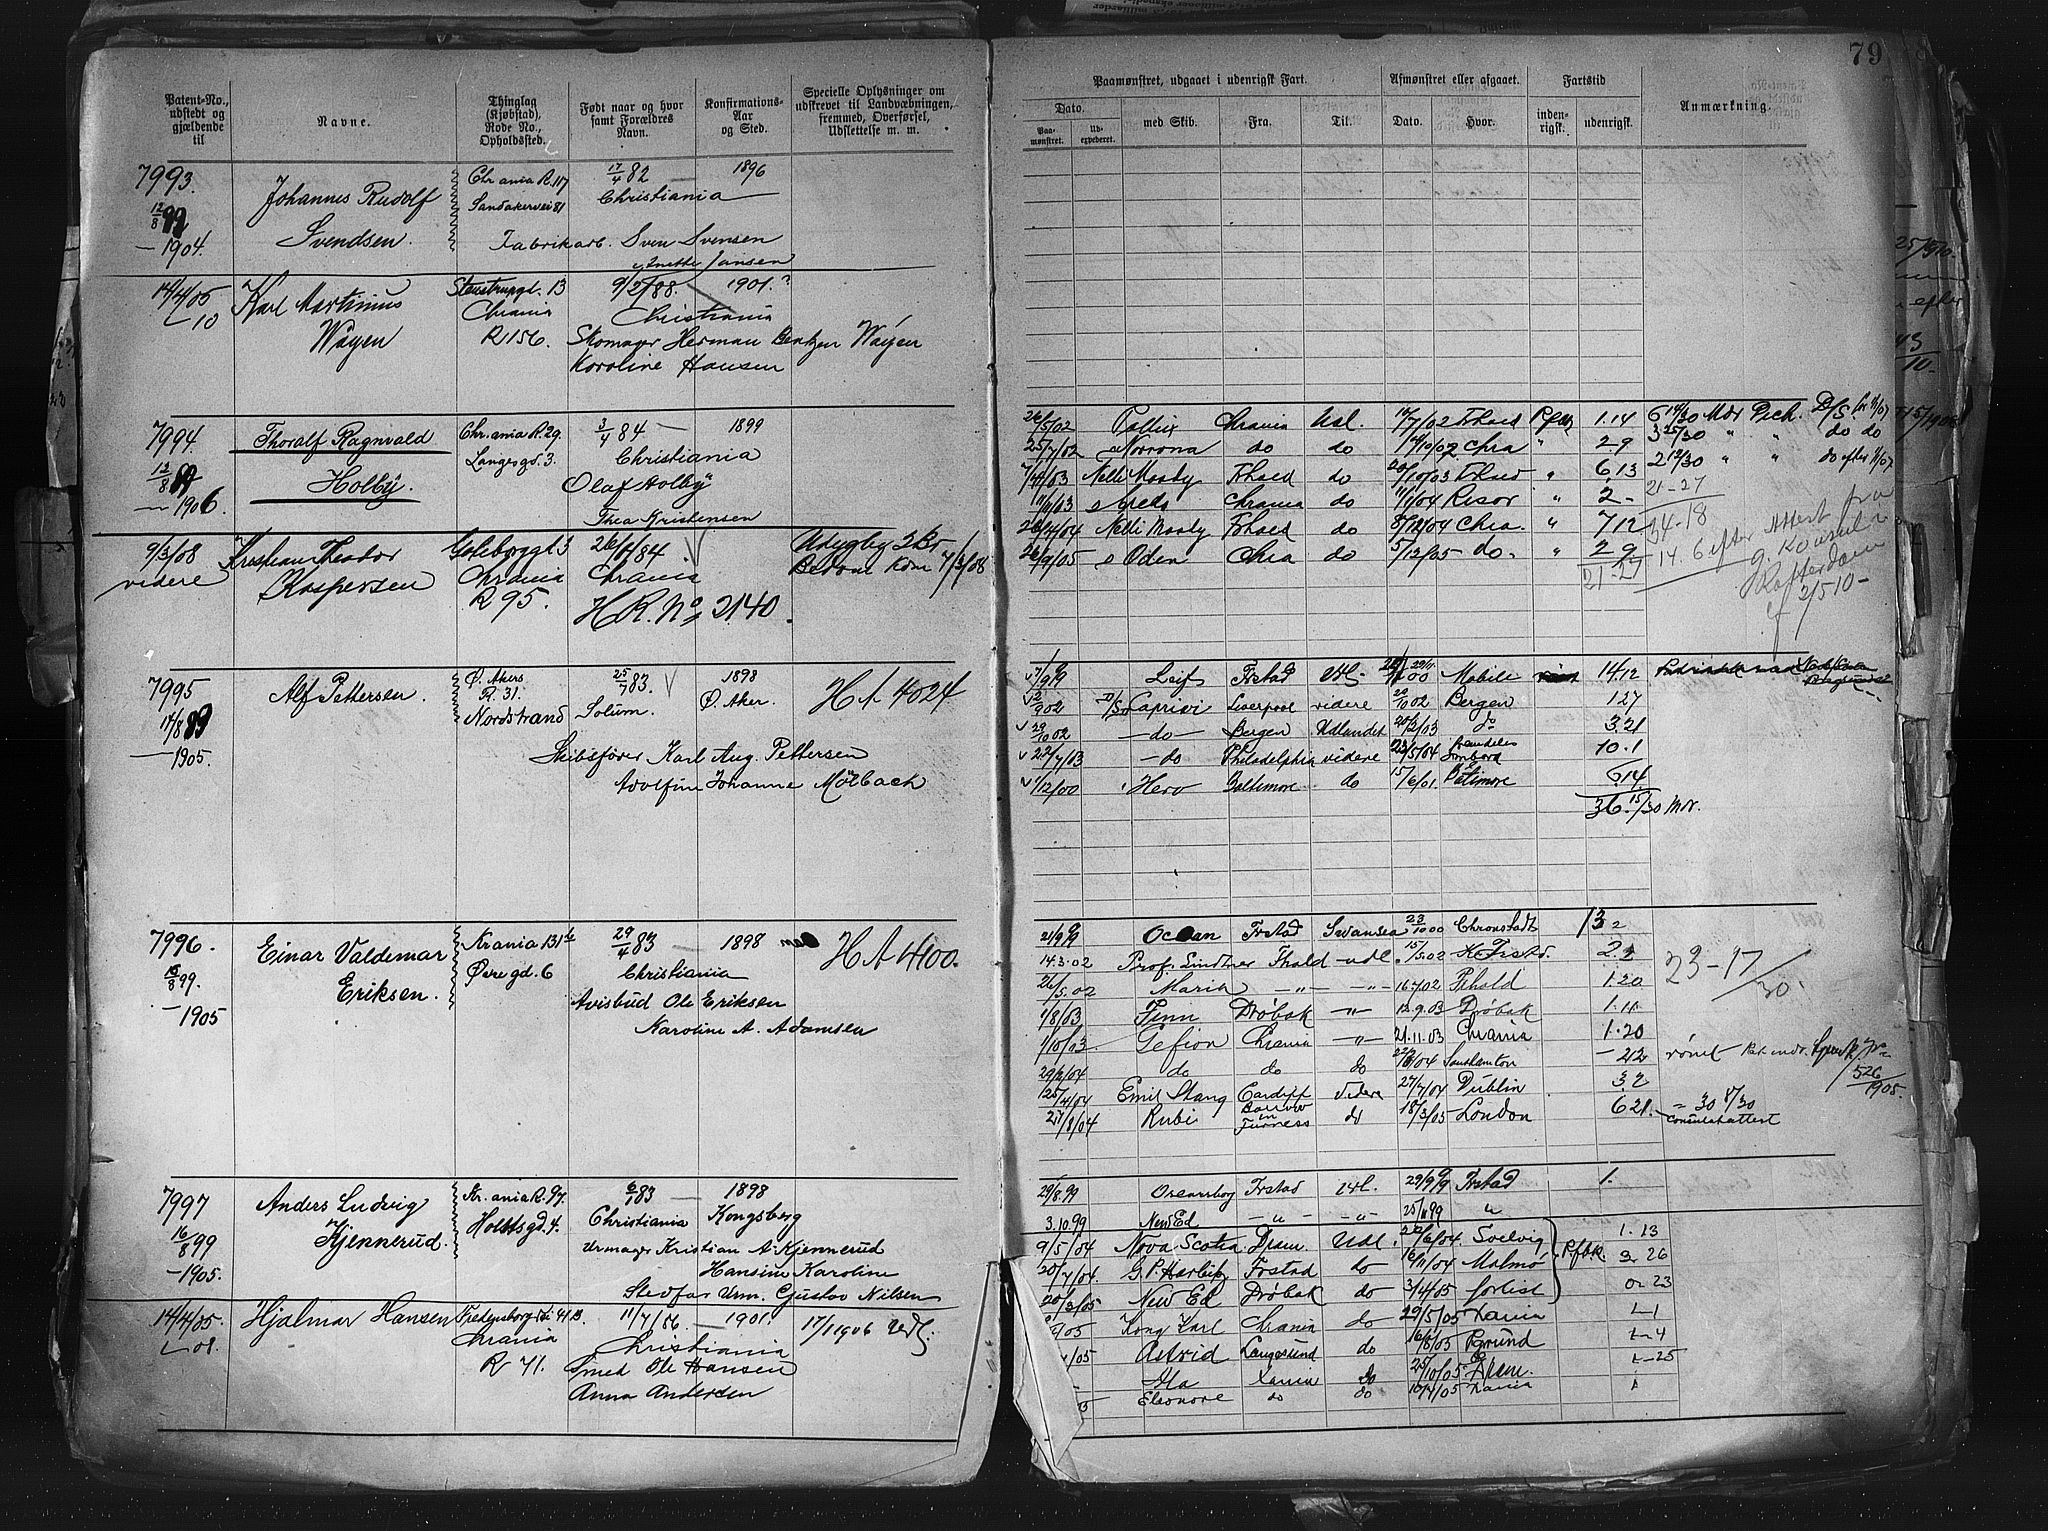 79
Patent-No., udstedt og gjældende til
Navne.
Thinglag (Kjøbstad), Rode No., Opholdssted.
Født naar og hvor samt Forældres Navn.
Konfirmations-Aar og Sted.
Specielle Oplysninger om udskrevet til Landværningen, fremmed, Overførsel, Udslettelse m. m.
Paamønstret, udgaaet i udenrigsk Fart.
Afmønstret eller afgaaet.
Fartstid
Anmærkning.
Dato.
Paamønstret.
Udexpederet.
med Skib.
Fra.
Til.
Dato.
Hvor.
indenrigsk.
udenrigsk.
7993. Johannes Rudolf Chr.ania R. 117 17/4 82 — 1896
12/8 99 Svendsen. Sandakervei 81 Christiania
—1904. Fabrikarb. Sven Svensen
Anette Jansen
14/4/05 Karl Martinius Stenstrupgt. 13 9/2/88. 1901.?
—10 Wøyen Chrania Christiania
R 156. Skomager Herman Bentzen Wøyen
Karoline Hansen
7994. Thoralf Ragnvald Chr.ania R. 29. 3/4 84 — 1899
12/8 99 Holby. Langesgd. 3. Christiania
—1906. Olaf Holby
Thea Kristensen
9/3/08 Theodor Goteborggt 3 26/1/84
videre Kaspersen Chrania Chrania
R 95. H.R. No 2140.
7995 Alf Pettersen. Ø. Akers R. 31. 25/7 83. 1898 H A 4024
Nordstrand Solum. Ø. Aker.
—1905. Skibsfører Karl Aug. Pettersen
Adolfine Johanne Mølbach
7996. Einar Valdemar Krania 131 29/4 83 — 1898 H A 4100.
15/8 99. Eriksen. Øvregd. 6 Christiania
—1905 Avisbud Ole Eriksen
Karoline A. Adamsen
7997 Anders Ludvig Kr.ania R. 97. 6/1 83 — 1898
16/8 99 Kjennerud. Holstsgd. 4. Christiania Kongsberg
—1905. Urmager Kristian A. Kjennerud
Hansine Karoline
Stedfar Urm. Gustav Nilsen
14/4/05 Hjalmar Hansen Fredensborgvei 41 B. 11/7/86 — 1901. 17/1 1906 Udl.
—08. Chrania Christiania
R 71. Smed Ole Hansen
Anna Andersen
26/5/02 Pollux Chrania Udl. 14/7/02 Frhaed 1.14
25/7/02 Norrona do do 14/10/02 Chra " 2-9
Nelli Moody Frhaed do 20/10/03 " 6,13
Chrania do 11/1/04 Risør " 2-
26/4/04 Nelli Moody Frhaed do 8/12/04 Chra. " 7,12
26/9/05 Oden Chra do 5/12/05 do. " 2 9
21-27
21-27
14-18
14. 6 efter Attest fra
Konsulen
Rotterdam
2/5 10-
7/9 99 Leif Frstad Udl. 29/11 00 Mobile 14.12
2/9 02 D/S Caprivi Liverpool videre 22/10 02 Bergen 1 27
29/10 02 —do— Bergen Udlandet 20/2/03 do 3.21
22/7/03 —do Philadelphia videre 23/5/04 10.1
1/12/00 Hero Baltimore do 15/6/01. Baltimore 6.14
36.15/30 Mdr.
21/9 99 Ocean Frstad Swansea 23/10 00 Chronstadt 13 2
14.3.02 Prof. Lindtner Fhald udl. 15/5.02 Frstad. 2.2
26/5.02 Maria —"— —"— 16.7.02 Fhald 1.20 23-17/30
1/8/03 Finn Drøbak —"— 12.9.03 Drøbak 1.11
1/10/03 Gefion Chrania —"— 21.11.03 Chrania 1.20
29/2/04 do do do Southamton -22
25/4/04 Emil Stang Cardiff videre 27/7/04 Dublin 3.2
27/8/04 Rubi Barrow in Furness do 18/3/05 London 6 21. = 30 8/30
Consulatattest
526/1905.
29/8.99 Oscarsborg Frstad Udl. 29/9/99 Frstad 1.
3.10.99 New Ed —"— —"— 25/11 99 "
9/5/04 Nova Scotia Dram. Udl. 22/6/04 Svelvig 1. 13
20/7/04. G. P. Harbitz Frstad do 16/11/04 Malmø 3 26
20/2/05 New Ed Drøbak do 3/4/05 2 23
Kong Karl Chrania do 29/5/05 Xania -1
Astrid Langesund do 16/8/05 Pgrund -4
Ala Xania do 25/10/05 Dram. -25
Eleonore do do Xania